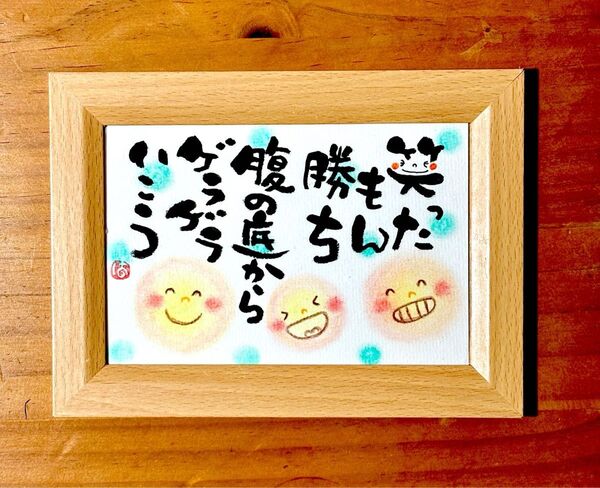 笑った
もん
勝ち
腹の底から
ゲラゲラ
いこう